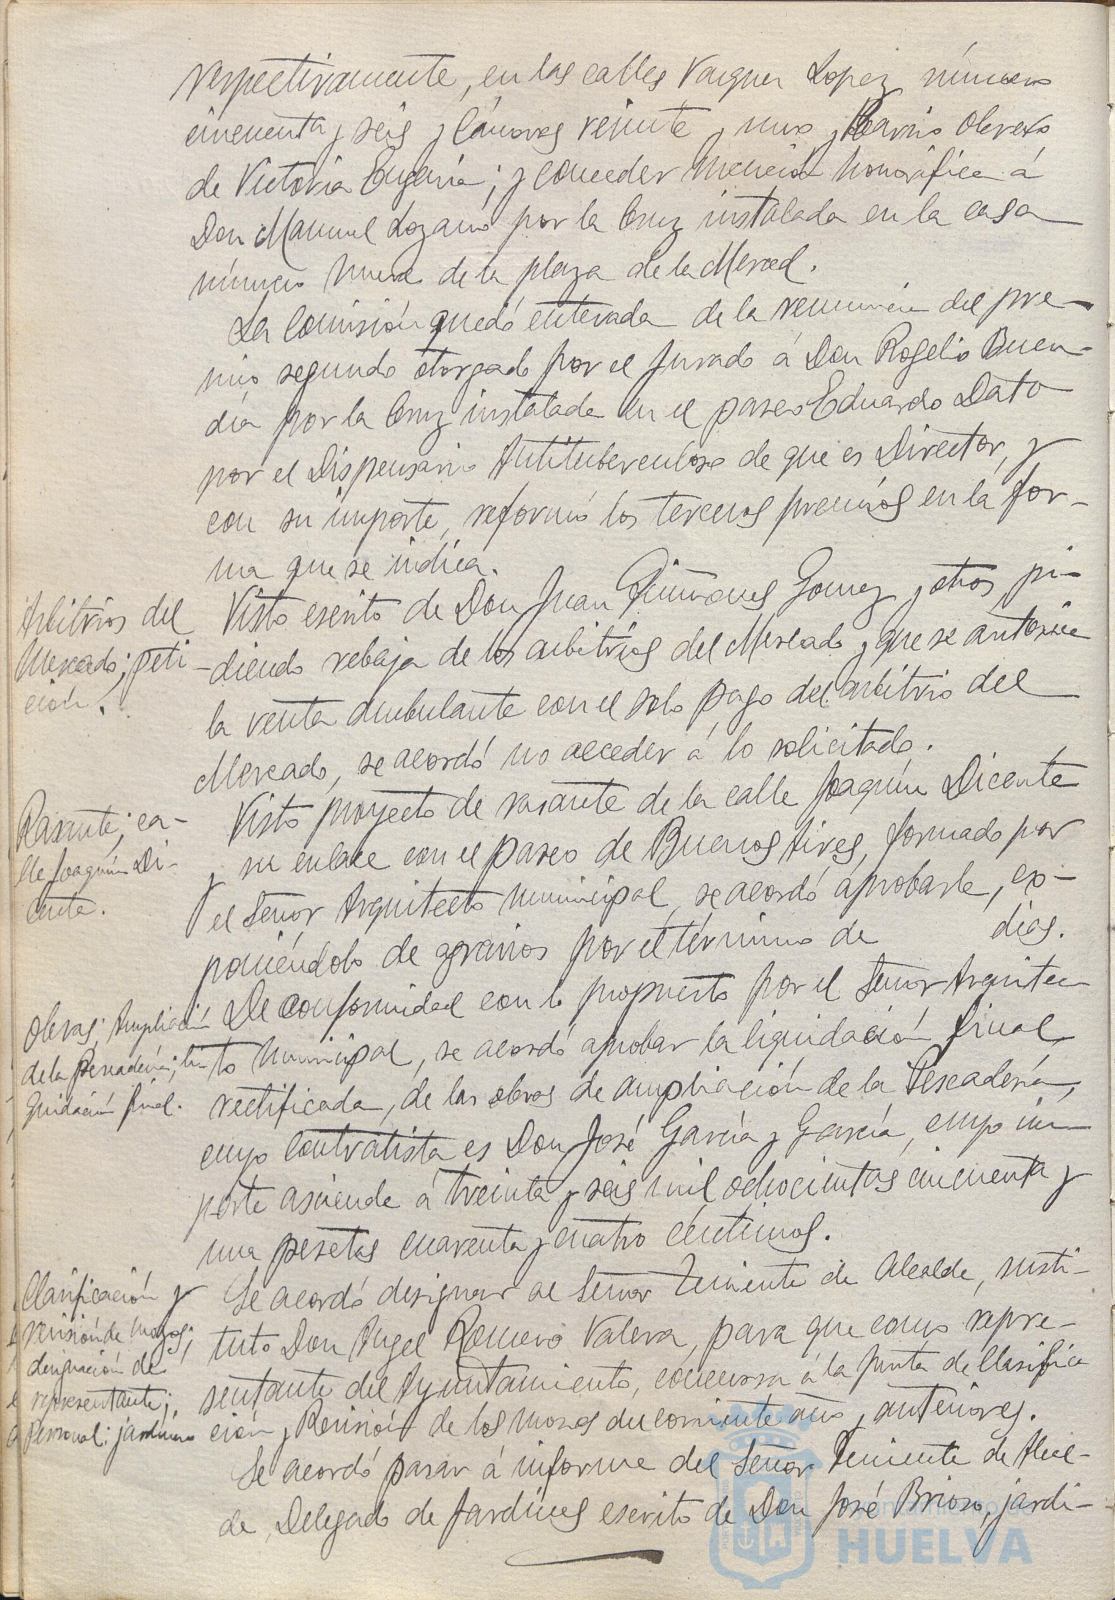 respectivamente, en las calles Vazquez Lopez, número
cincuenta y seis y Cánovas veinte y uno y Barrio Obrero
de Victoria Eugenia; y conceder Mención honorífica á
Don Manuel Lozano por la Cruz instalada en la casa
número nueve de la plaza de la Merced.
La Comisión quedó enterada de la renuncia del pre-
mio segundo otorgado por el Jurado á Don Rogelio Buen-
día por la Cruz instalada en el paseo Eduardo Dato
por el Dispensario Antituberculoso de que es Director, y
con su importe, reformó los terceros premios en la for-
ma que se indica.
Arbitrios del
Mercado; peti-
ción.
Visto escrito de Don Juan Quiñones Gomez y otros, pi-
diendo rebaja de los arbitrios del Mercado y que se autorice
la venta ambulante con el solo pago del arbitrio del
Mercado, se acordó no acceder á lo solicitado.
Rasante; ca-
lle Joaquín Di-
centa.
Visto proyecto de rasante de la calle Joaquín Dicenta
y su enlace con el paseo de Buenos Aires, formado por
el Señor Arquitecto Municipal, se acordó aprobarle, ex-
poniéndolo de agravios por el término de días.
Obras; Ampliación
de la Pescadería; li-
quidación final.
De conformidad con lo propuesto por el Señor Arquitec-
to Municipal, se acordó aprobar la liquidación final,
rectificada, de las obras de ampliación de la Pescadería,
cuyo contratista es Don José García y García, cuyo im-
porte asciende á treinta y seis mil ochocientas cincuenta y
una pesetas cuarenta y cuatro céntimos.
Clasificación y
revisión de mozos;
designación de
representante;
Personal: jardinero
Se acordó designar al Señor Teniente de Alcalde, susti-
tuto Don Angel Romero Valera, para que como repre-
sentante del Ayuntamiento, concurra á la Junta de Clasifica
ción y Revisión de los mozos del corriente año y anteriores.
Se acordó pasar á informe del Señor Teniente de Alcal-
de, Delegado de Jardines escrito de Don José Brioso, jardi-
HUELVA